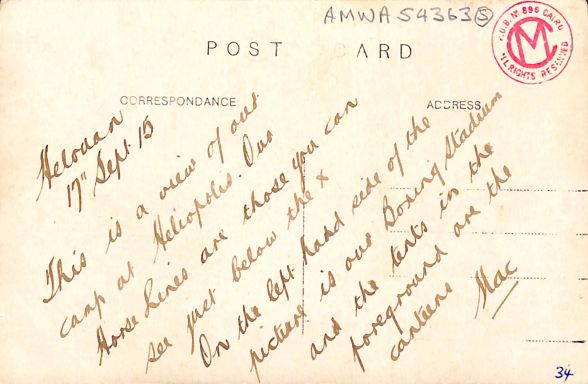 AMWA 54363 S
POST CARD
P.O.B. No 896 CAIRO
CM
ALL RIGHTS RESERVED
CORRESPONDANCE
ADDRESS
Helouan
17" Sept 15
This is a view of our
camp at Heliopolis. Our
Horse Lines are those you can
see just below the x
On the left hand side of the
picture is our Boxing Stadium
and the tents in the
foreground are the
canteens
Mac
34